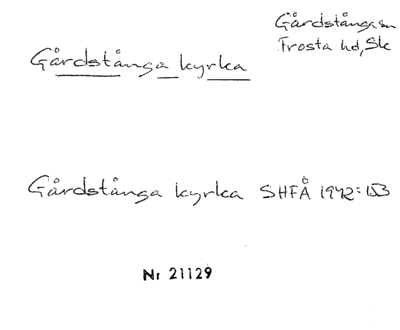 Gårdstånga sn
Frosta hd, Sk
Gårdstånga kyrka
Gårdstånga kyrka SHFÅ 1942:153
Nr 21129